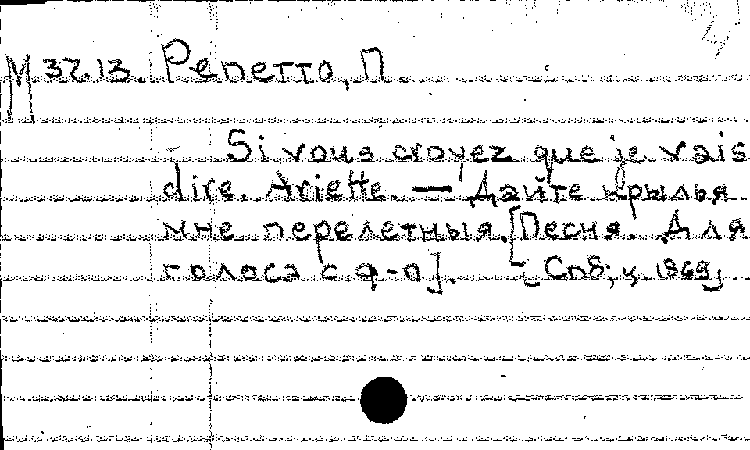 М 37.13. Репетто, П.
Si vous croyez que je vais
dire. Ariette. — Дайте крылья
мне перелетныя. [Песня. Для
голоса с ф-п]. [Спб, ц. 1869]